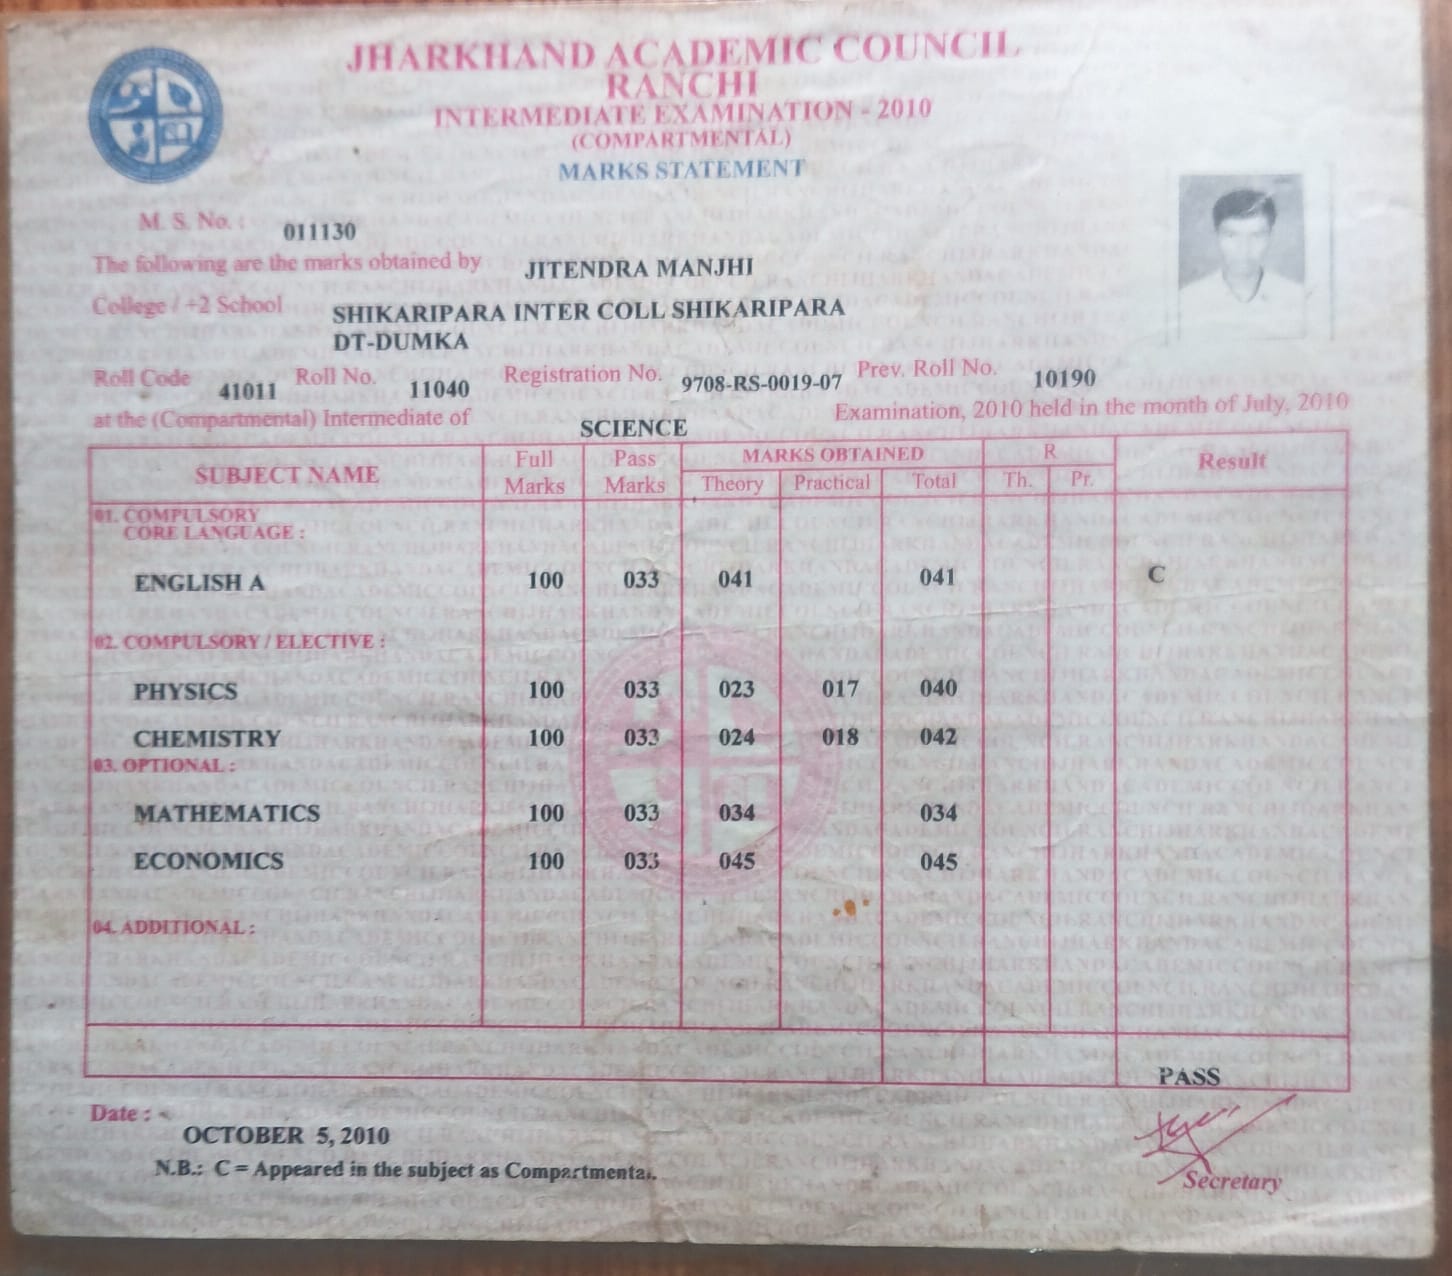 JHARKHAND ACADEMIC COUNCIL
RANCHI
INTERMEDIATE EXAMINATION - 2010
(COMPARTMENTAL)
MARKS STATEMENT
M. S. No. : 011130
The following are the marks obtained by JITENDRA MANJHI
College / +2 School SHIKARIPARA INTER COLL SHIKARIPARA
DT-DUMKA
Roll Code 41011 Roll No. 11040 Registration No. 9708-RS-0019-07 Prev. Roll No. 10190
at the (Compartmental) Intermediate of SCIENCE Examination, 2010 held in the month of July, 2010
SUBJECT NAME Full Marks Pass Marks MARKS OBTAINED R Result
Theory Practical Total Th. Pr.
01. COMPULSORY
CORE LANGUAGE :
ENGLISH A 100 033 041 041 C
02. COMPULSORY / ELECTIVE :
PHYSICS 100 033 023 017 040
CHEMISTRY 100 033 024 018 042
03. OPTIONAL :
MATHEMATICS 100 033 034 034
ECONOMICS 100 033 045 045
04. ADDITIONAL :
PASS
Date :
OCTOBER 5, 2010
N.B.: C = Appeared in the subject as Compartmental.
Secretary